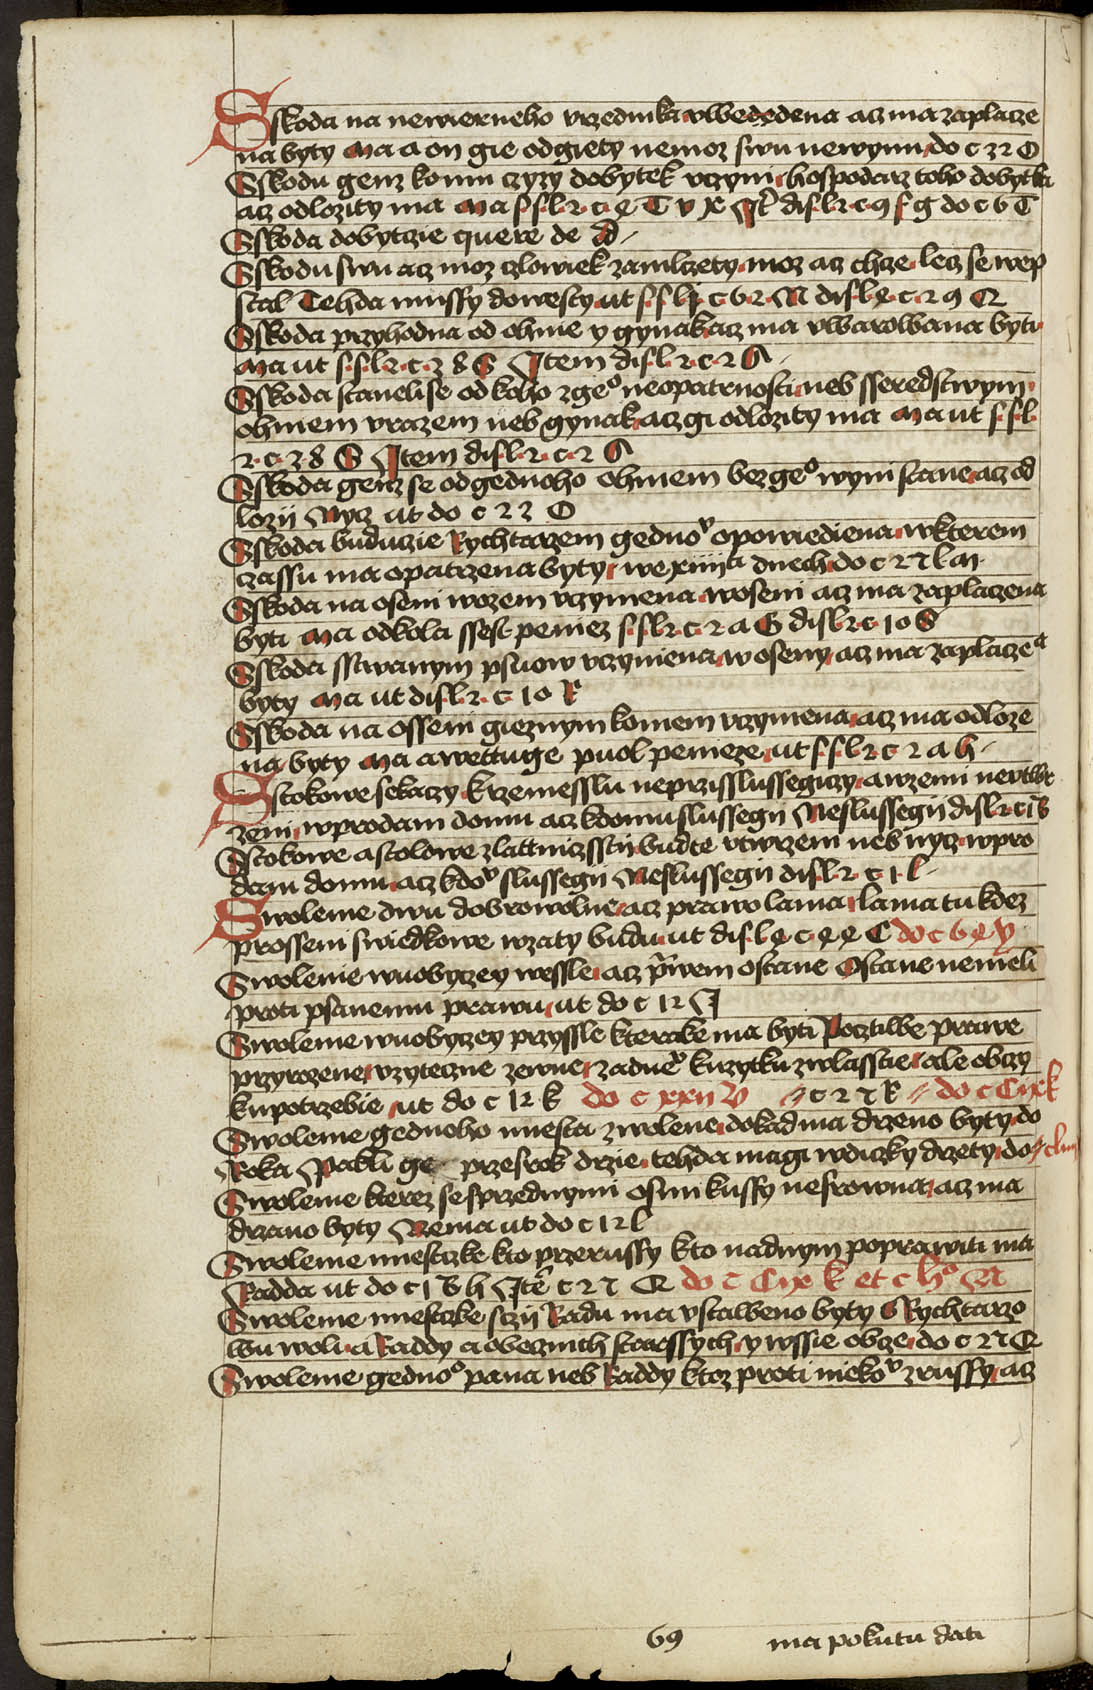 Sskoda na newierneho vrzednika vwedena acz ma zaplacze
na byty Ma a on gie odgiety nemoz swu newynu do c 32 O
Sskodu genz komu czyzy dobytek vczyni hospodarz toho dobytka
acz odlozity ma Ma s. s. l. 2. c. 4 T v X It dis. l. 2. c. 9 f g do c 6 T
Sskoda dobytczie quere de D
Sskodu swu acz moz czlowiek zamlczety moz acz chcze lecz se wep
stal Tehda mussy dowesty ut s. s. l. c. 62. N dis. l. 4. c. 29 Q
Sskoda przyhodna od ohnie y gynak acz ma vwarowana byti
Ma ut s. s. l. 2. c. 38 S Item dis. l. 2. c. 2 A
Sskoda staneli se od koho zgeo neopatrnosti neb sseredstwym
ohnem vrazem neb gynak acz gi odlozity ma Ma ut s. s. l.
2. c. 38 S Item dis. l. 2. c. 2 A
Sskoda genz se od gednoho ohnem bez geo wyni stane acz od
lozij Nycz ut do c 23 O
Sskoda buduczie Rychtarzem gednov opowiediena w kterem
czassu ma opatrzena byty we xiiij a dnech do c 27 l m
Sskoda na oseni wozem vczynena w oseni acz ma zaplaczena
byti Ma od kola ssest peniez s. s. l. 2. c. 2 a G dis. l. 2. c. 10 S
Sskoda sswanym psuow vczyniena w oseny acz ma zaplacze a
byty Ma ut dis. l. 2. c. 10 R
Sskoda na osseni gieznym koniem vczynena acz ma odloze
na byty Ma a wettuge puol penieze ut s. s. l. 2 c 2 a h
Sstokowe sekaczy k rzemesslu neprzisslussegiczy a w zemi nevtwr
zeni w prodani domu acz k domu slussegij Neslussegij dis. l. 2 c 18
Sstokowe a stolowe z lattniczsstij budte vtwrzeni neb nycz w pro
dani domu acz k dov slussegij Neslussegij dis. l. 2. c 1. l
Swolenie dwu dobrowolne acz prawo lama lama tu kdez
prosseni swiedkowe wzaty budu ut dis. l. 4 c. 44 C do c 64 y
Swolenie w uobyczey wessle acz prwem ostane Ostane nemeli
proti psanemu prawu ut do c 12 I
Swolenie w uobyczey przyssle kterake ma byti Pocztilwe prawe
przyrozene vzyteczne zewne zadnev k uzytku zwlasscie ale obczy
ku potrzebie ut do c 12 k do c xxij V c 27 R do c Cixk
Swolenie gednoho miesta zwolene dokad ma drzeno byty do
Roka Pakli ge przes rok drzie tehda magi wdiczky drzety do
Swolenie kterez se s przednymi osmi kussy nesrowna acz ma
drzano byty Nema ut do c 12 l
Swolenie miestcke kto przerussy kto nad nym poprawiti ma
Radda ut do c 18 h Ite c 27 Q do c Cix k et c ho M
Swolenie miestcke sczij Radu ma vstaweno byty S Rychtarzo
wu woli a Raddy a obecznich starssych y wssie obcze do c 27 Q
Swolenie gednoo pana neb Raddy ktoz proti niekov zrussy acz
69 ma pokutu dati